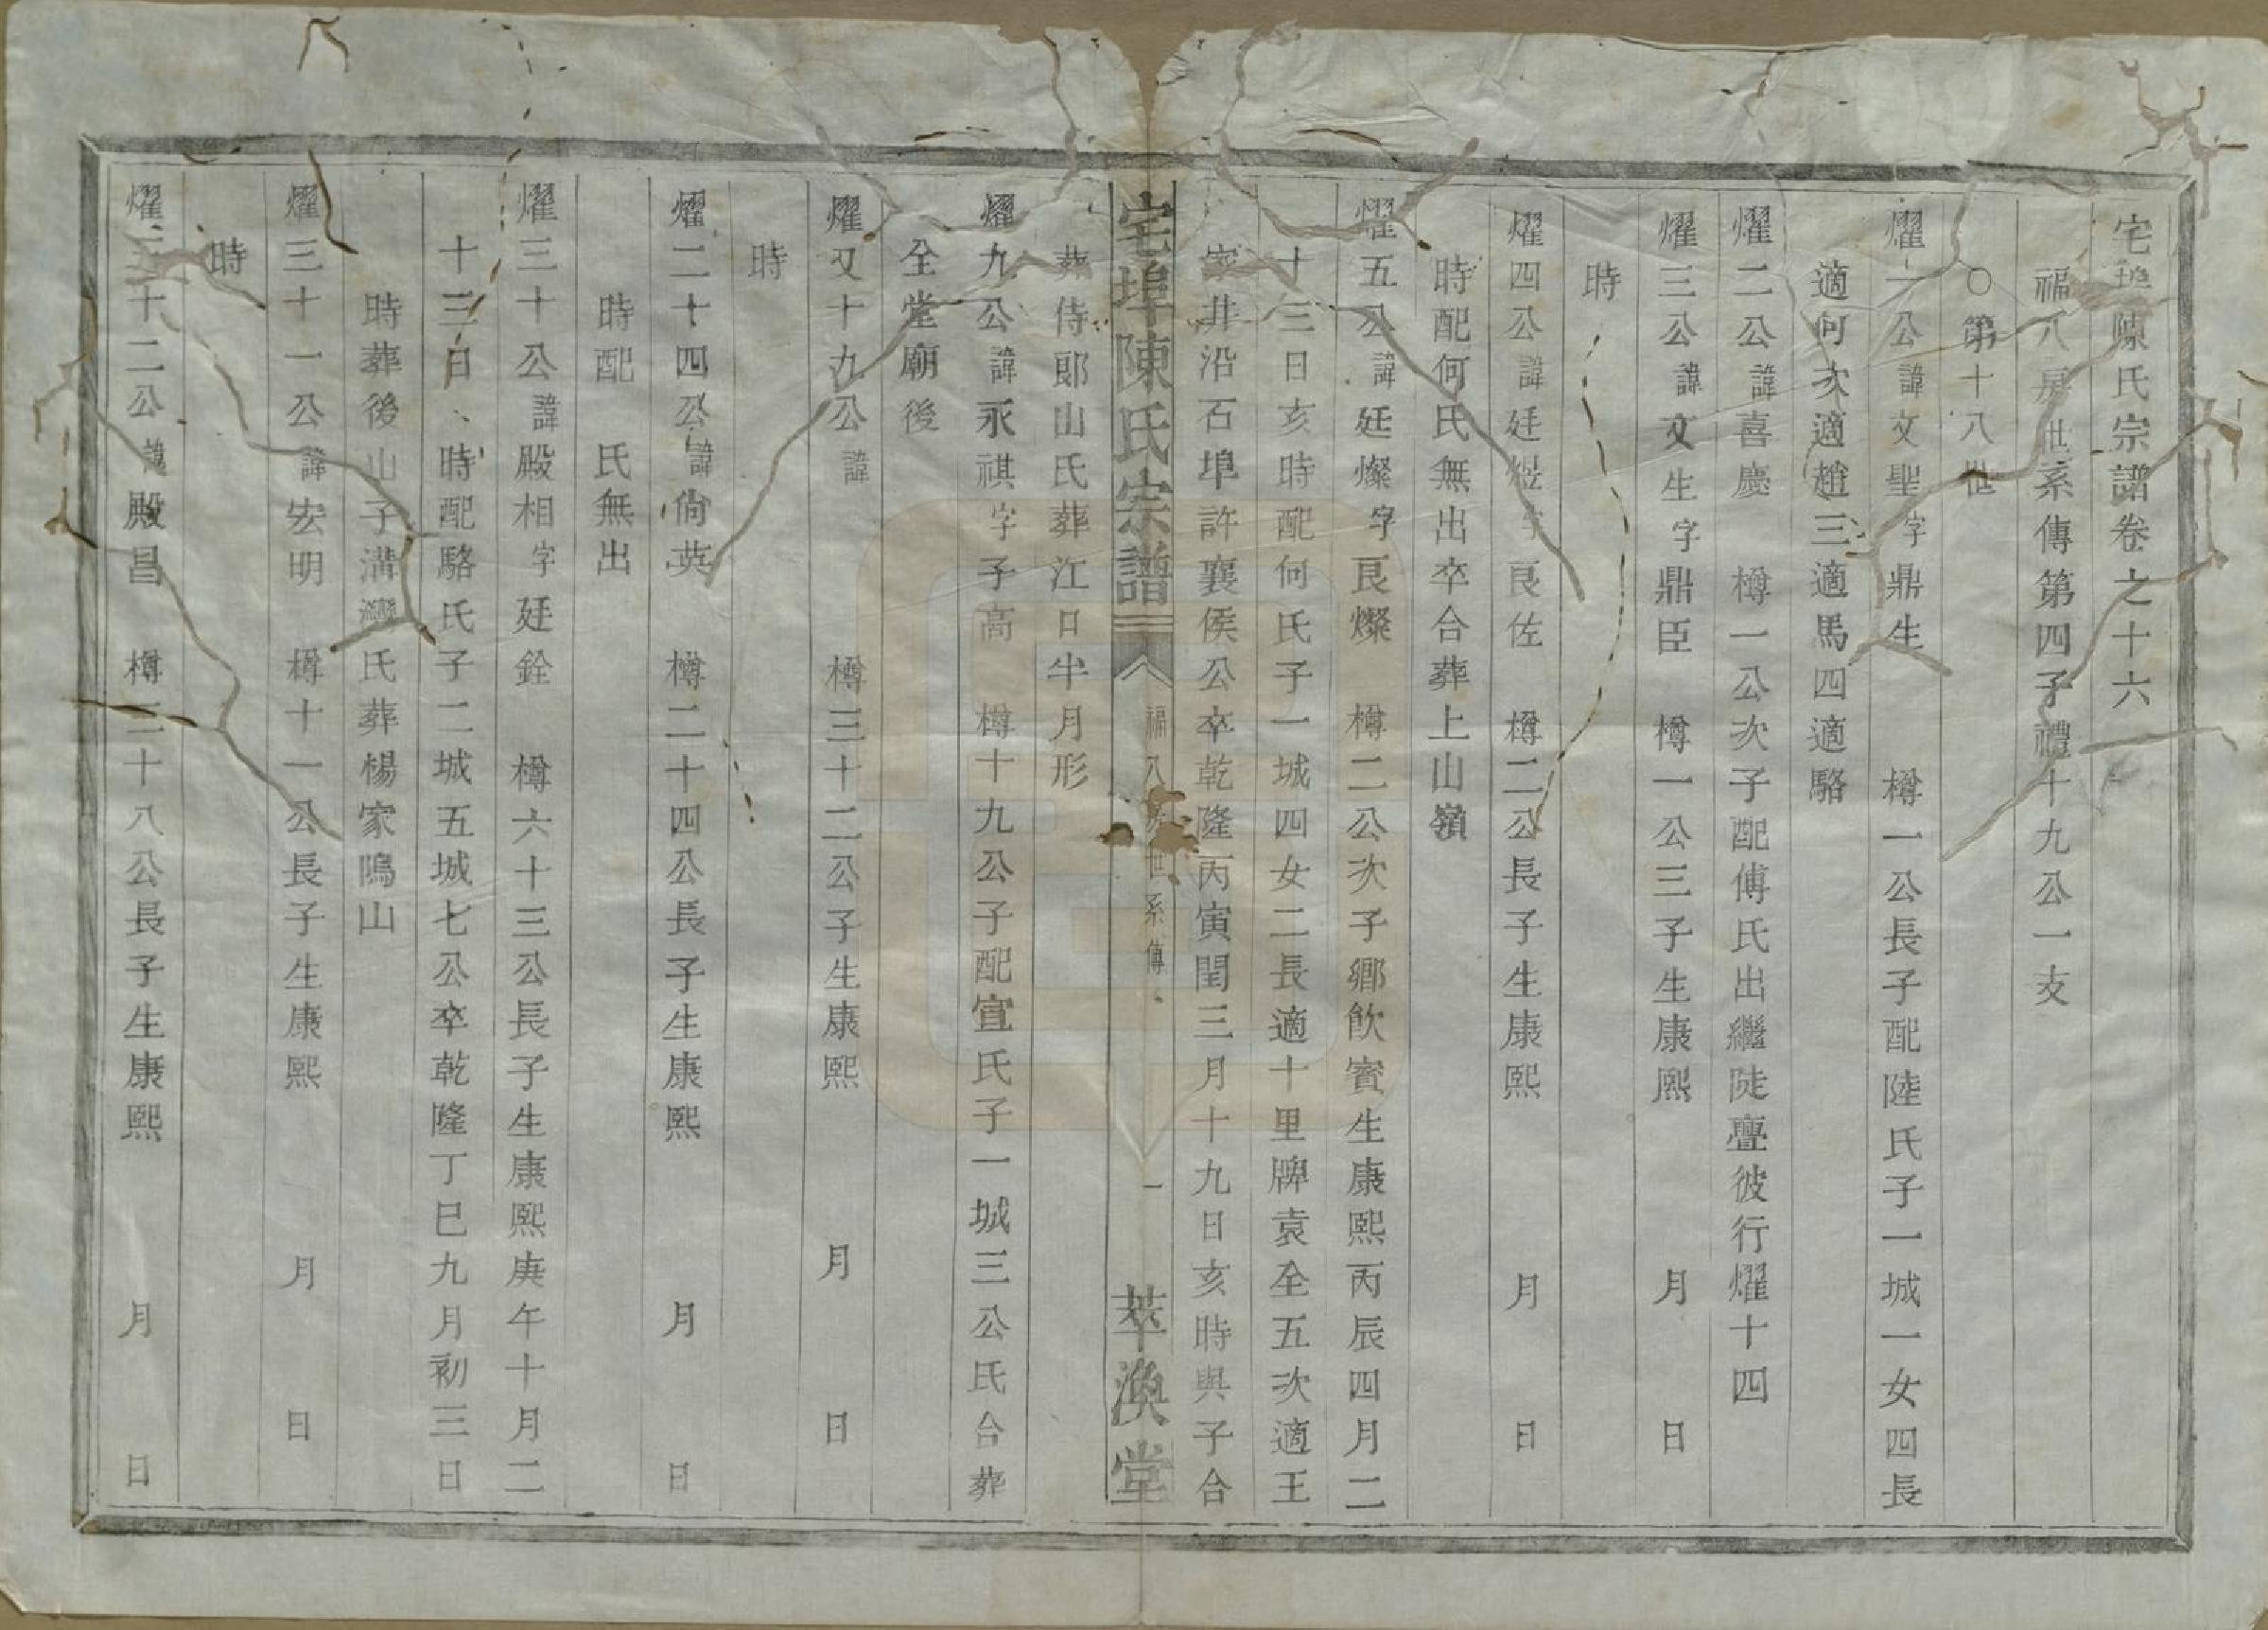 宅埠陳氏宗譜卷之十六
福八房世系傳第四子禮十九公一支
○第十八世
燿一公諱文聖字鼎生 樽一公長子配陸氏子一城一女四長
適何次適趙三適馬四適駱
燿二公諱喜慶 樽一公次子配傅氏出繼陡亹彼行燿十四
燿三公諱文生字鼎臣 樽一公三子生康熙 月 日
時
燿四公諱廷煜字良佐 樽二公長子生康熙 月 日
時配何氏無出卒合葬上山嶺
燿五公諱廷燦字良燦 樽二公次子鄉飲賓生康熙丙辰四月二
十三日亥時配何氏子一城四女二長適十里牌袁仝五次適王
家井沿石埠許襄侯公卒乾隆丙寅閏三月十九日亥時與子合
葬侍郎山氏葬江口半月形
宅埠陳氏宗譜 福八房世系傳 一 萃渙堂
燿九公諱永祺字子高 樽十九公子配宣氏子一城三公氏合葬
仝堂廟後
燿又十九公諱 樽三十二公子生康熙 月 日
時
燿二十四公諱尙英 樽二十四公長子生康熙 月 日
時配 氏無出
燿三十公諱殿相字廷銓 樽六十三公長子生康熙庚午十月二
十三日 時配駱氏子二城五城七公卒乾隆丁巳九月初三日
時葬後山子溝灣氏葬楊家隖山
燿三十一公諱宏明 樽十一公長子生康熙 月 日
時
燿三十二公諱殿昌 樽二十八公長子生康熙 月 日